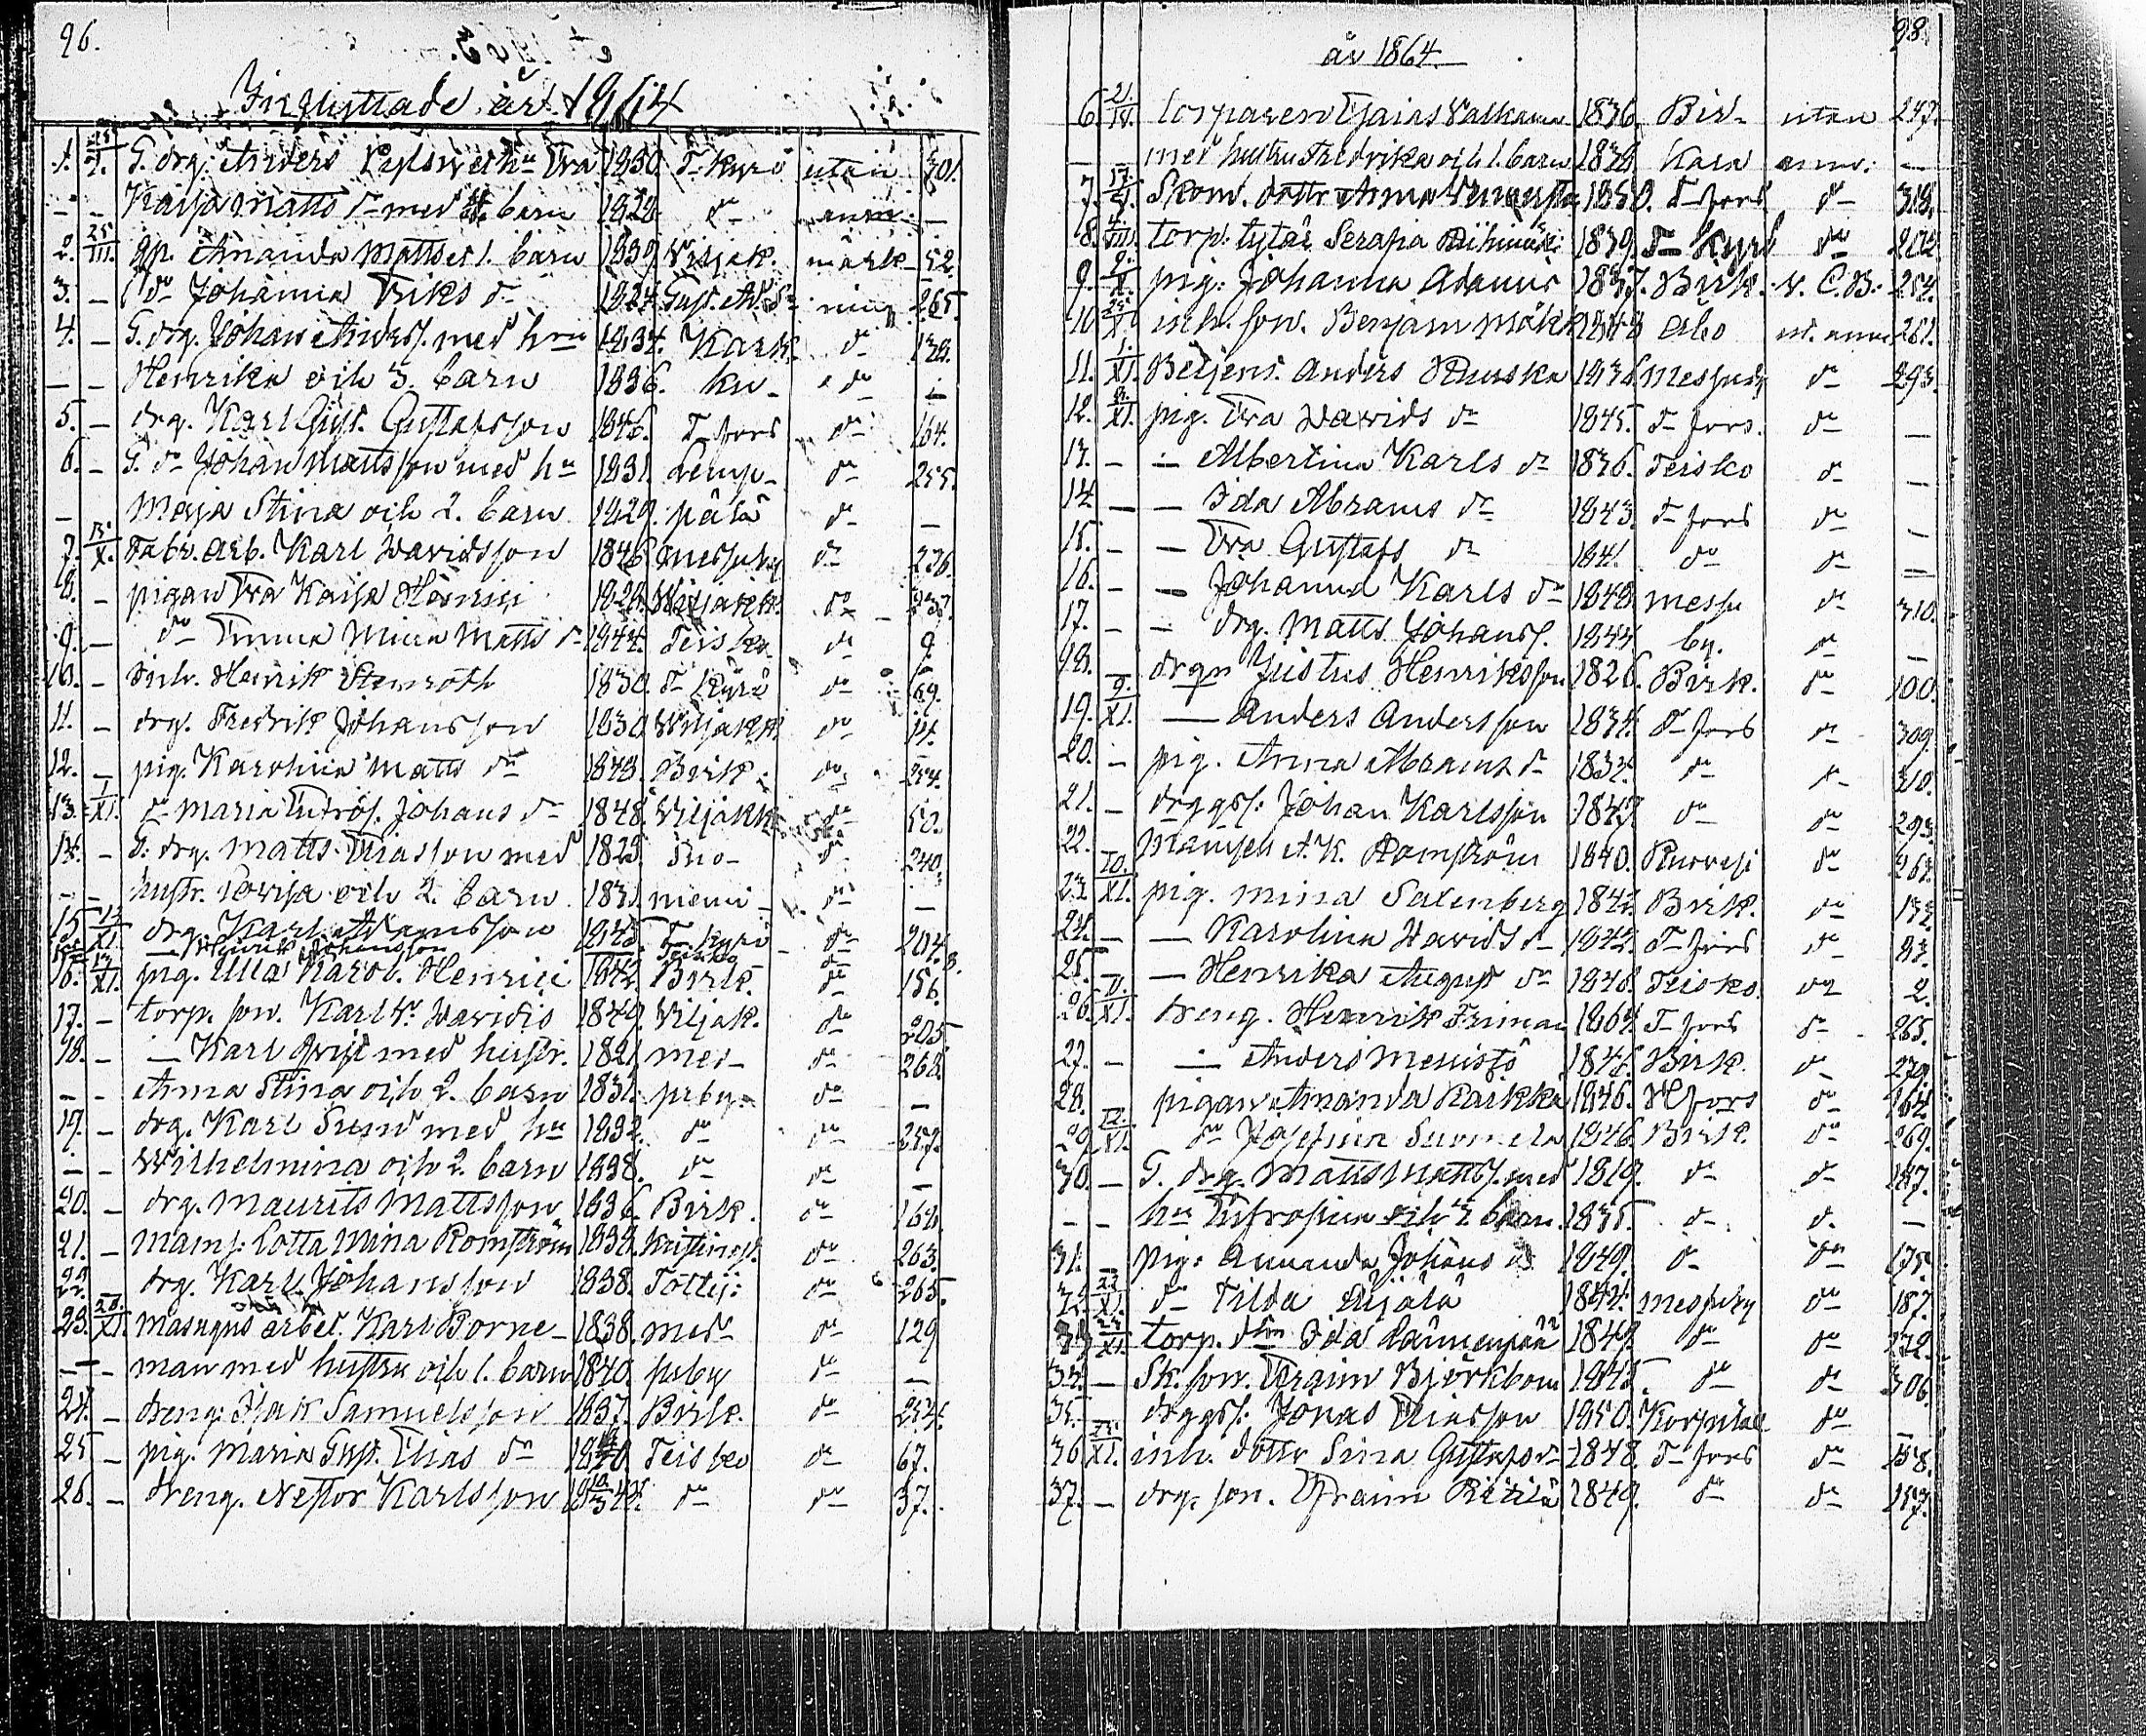 96.
Inflyttade år 1864
1. 25/I. G. drg. Anders hu Eva 1830. T. Kyrö utan 301.
— — Kaisa Matts dr med 4. barn 1829. do anm. —
2. 25/III. qp. Amanda Matts et 1. barn 1839. Viljak. märk- 52.
3. — do Johanna Eriks dr 1824. Gust. Ad. Sn ning 265.
4. — G. drg. Johan Anders. med hru 1834. Kark- do 128.
— — Henrika och 3. barn 1836. ku- do —
5. — drg. Karl Gust. Gustafsson 1846. T. fors do 164.
6. — G. do Johan Mattsson med hu 1831. Lemp- do 255.
— Maja Stina och 2. barn 1829. pälä do —
7. 15/X. Fabr. arb. Karl Davidsson 1846. Messuby do 236.
8. — pigan Eva Kaisa Henrici 1828. Viljakk. do 237.
9. — do Emma Mina Matts dr 1844. Teisko. do 9.
10. — Inh. Henrik Stenroth 1830. T. Kyrö do 69.
11. — drg. Fredrik Johansson 1830. Viljakk. do 14.
12. — pig. Karolina Matts dr 1843. Birk. do 254.
13. 1/XI. do Maria Eufros. Johans dr 1848. Viljakk. do 52.
14. — G. drg. Matts Eliasson med 1825. Suo- do 240.
— — hustr. Lovisa och 2. barn 1831. niemi- do —
15. 12/XI. drg. Karl Adamsson 1843. T. Kyrö do 204.
— Henrik Johansson Teisko do
16. 13/XI. pig. Ulla Karol. Henrici 1842. Birk. do 156.
17. — torp. son. Karl Fr. Davidis 1849. Viljak. do 205.
18. — — Karl Qvist med hustr. 1821. mes- do 268.
— — Anna Stina och 2. barn 1831. suby- do —
19. — drg. Karl Sund med hu 1832. do do 257.
— — Wilhelmina och 2. barn 1838. do do —
20. — drg. Maurits Mattsson 1836. Birk. do 168.
21. — Mams: Lotta Mina Romström 1839. Kristinest. do 263.
22. — drg. Karl Johansson 1838. Tottij: do 265.
23. 28/XI. Masugns arbet. Karl Borne- 1838. mes- do 129
— — man med hustru och 1. barn 1840. suby do —
24. — dreng. Isak Samuelsson 1837. Birk. do 254.
25 — pig. Maria Gust. Elias dr Teisko do 67.
26. — dreng. Nestor Karlsson do do 37.
98.
år 1864.
6. 21/IV. torparen Esaias Valkama 1836. Bir- utan 247.
— — med hustru Fredrika och 1. barn 1838. kala anm: —
7. 17/V. Skom. dottr. Anna 1850. T. fors do 318.
8. 4/VIII. torp. tytär Serafia Riihimäki 1839. T. Kyrö do 202.
9. 9/X. pig. Johanna Adamis 1837. Birk. N. C. B. 254.
10. 25/X. inh. son. Benjam Mäk 1848 Åbo ut. anm 261.
11. 1/XI. Betjent. Anders Ruuska 1836. Messuby do 293.
12. 8/XI. pig. Eva Davids dr 1845. T. fors. do —
13. — — Albertina Karls dr 1836. Teisko do —
14. — — Ida Abrams dr 1843. T. fors do —
15. — — Eva Gustafs dr 1841. do do —
16. — — Johanna Karls dr 1848. Messu do 310.
17. — — drg. Matts Johanss. 1844. by. do —
18. — drgn Justus Henriksson 1826. Birk. do 100.
19. 9/XI. — Anders Andersson 1834. T. fors do 309.
20. — pig. Anna Abrams dr 1834. do do 310.
21. — drggss. Johan Karlsson 1847. do do 293.
22. Mamsell A. K. Romström 1840. Ruovesi do 261.
23. 10/XI. pig. Mina Salenberg 1842. Birk. do 132.
24. — — Karolina Davids dr 1842. T. fors do 83.
25. — — Henrika August dr 1848. Teisko. do 2.
26. 11/XI. dreng. Henrik Friman 1864. T. fors do 265.
27. — — Anders Mellistö 1846. Birk. do 279.
28. pigan Amanda Raikka 1846. H. fors do 164.
29. 12/XI. do Josefina Suomela 1846. Birk. do 269.
30. — G. drg. Matts Matts. med 1819. do do 187.
— — hu Eufrosina och 2 barn. 1835. do do —
31. — pig. Amanda Johans dr 1849. do do 175.
32. 22/XI. do Tilda Äijälä 1844. Messuby do 187.
33. 23/XI. torp. dttn Ida Lammenpää 1849. do do 172.
34. — Sk. son. Efraim Björkbom 1845. do do 306.
35. — drggss. Jonas Eliasson 1850. Korpulax do —
36 25/XI. inh. dottr Sina Gustafs dr 1848. T. fors do 158.
37. — drg. son. Efraim Ritilä 1849. do do 157.